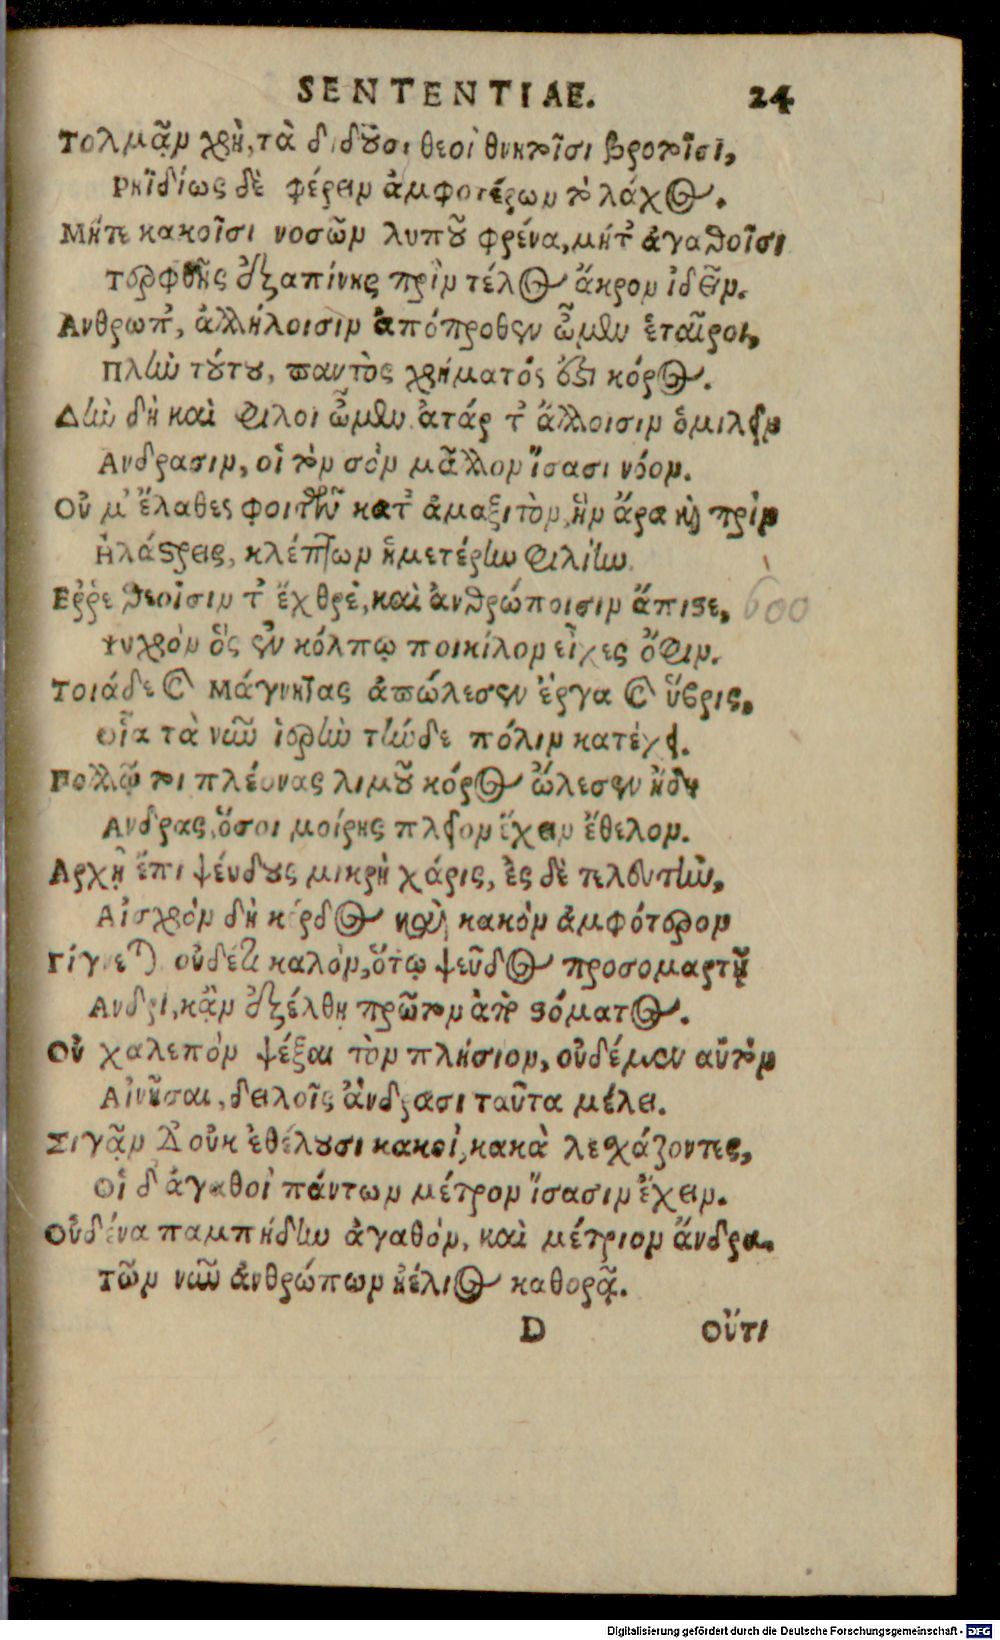 SENTENTIAE. 24
Τολμᾷν χρὴ, τὰ διδοῦσι θεοὶ θνητοῖσι βροτοῖσι,
Ρηϊδίως δὲ φέρειν ἀμφοτέρων τὸ λάχος.
Μήτε κακοῖσι νοσῶν λυποῦ φρένα, μήτ' ἀγαθοῖσι
Τερφθῇς ἐξαπίνης πρὶν τέλος ἄκρον ἰδεῖν.
Ανθρωπ', ἀλλήλοισιν ἀπόπροθεν ὦμεν ἑταῖροι,
Πλὴν τούτου, παντὸς χρήματός ἐστι κόρος.
Δὴν δὴ καὶ φίλοι ὦμεν. ἀτάρ τ' ἄλλοισιν ὁμίλει
Ανδρασιν, οἳ τὸν σὸν μᾶλλον ἴσασι νόον.
Οὔ μ' ἔλαθες φοιτῶν κατ' ἀμαξιτὸν, ἣν ἄρα καὶ πρὶν
Ηλάστρεις, κλέπτων ἡμετέρην φιλίην.
Ερῥε θεοῖσιν τ' ἔχθρέ, καὶ ἀνθρώποισιν ἄπιστε, 600
Ψυχρὸν ὃς ἐν κόλπῳ ποικίλον εἶχες ὄφιν.
Τοιάδε καὶ Μάγνητας ἀπώλεσεν ἔργα καὶ ὕβρις,
Οἷα τὰ νῦν ἱερὴν τήνδε πόλιν κατέχει.
Πολλῷ τοι πλέονας λιμοῦ κόρος ὤλεσεν ἤδη
Ανδρας, ὅσοι μοίρης πλεῖον ἔχειν ἔθελον.
Αρχῇ ἔπι ψεύδους μικρὴ χάρις, ἐς δὲ τελευτὴν,
Αἰσχρὸν δὴ κέρδος καὶ κακὸν ἀμφότερον
Γίγνεται οὐδέτι καλὸν, ὅτῳ ψεῦδος προσομαρτῇ
Ανδρὶ, κᾂν ἐξέλθῃ πρῶτον ἀπὸ στόματος.
Οὐ χαλεπὸν ψέξαι τὸν πλήσιον, οὐδέμεν αὐτὸν
Αἰνῆσαι, δειλοῖς ἀνδράσι ταῦτα μέλει.
Σιγᾷν δ' οὐκ ἐθέλουσι κακοὶ, κακὰ λεσχάζοντες,
Οἱ δ' ἀγαθοὶ πάντων μέτρον ἴσασιν ἔχειν.
Οὐδένα παμπήδην ἀγαθὸν, καὶ μέτριον ἄνδρα.
Τῶν νῦν ἀνθρώπων ἠέλιος καθορᾷ.
D Οὔτι
Digitalisierung gefördert durch die Deutsche Forschungsgemeinschaft - DFG